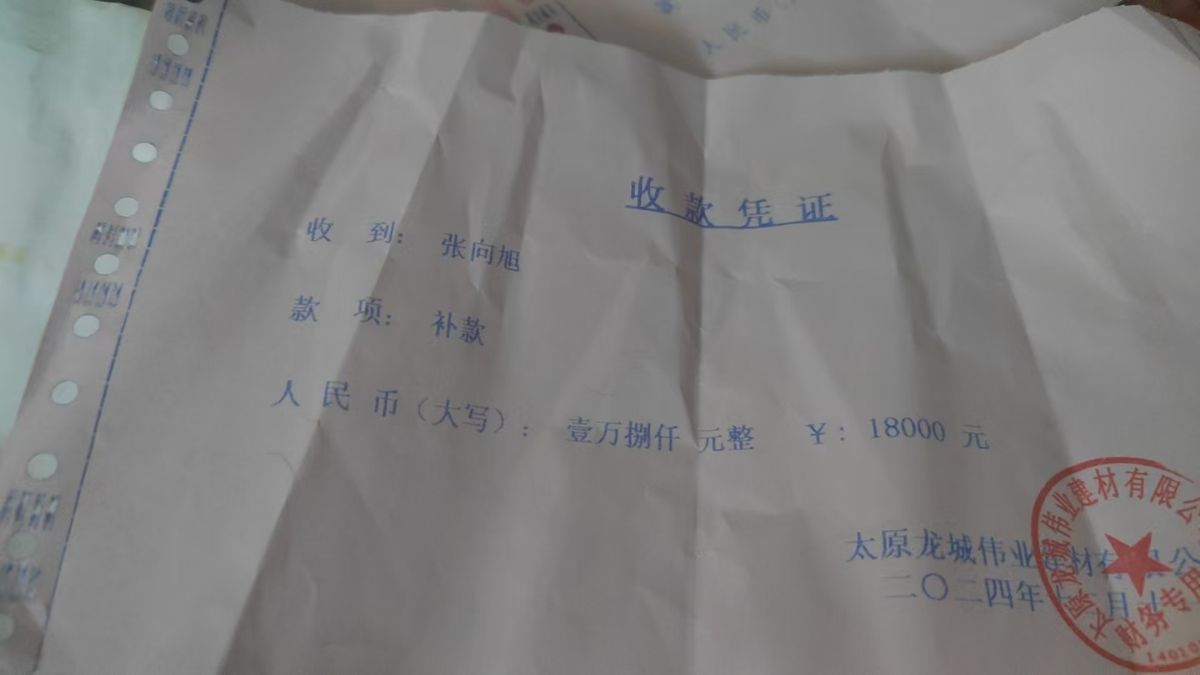 人民币（
收款凭证
收 到： 张向旭
款 项： 补款
人 民 币（大写）： 壹万捌仟 元整 ￥：18000 元
太原龙城伟业建材有限公
二〇二四年 月
太原龙城伟业建材有限公
财务专用
14010